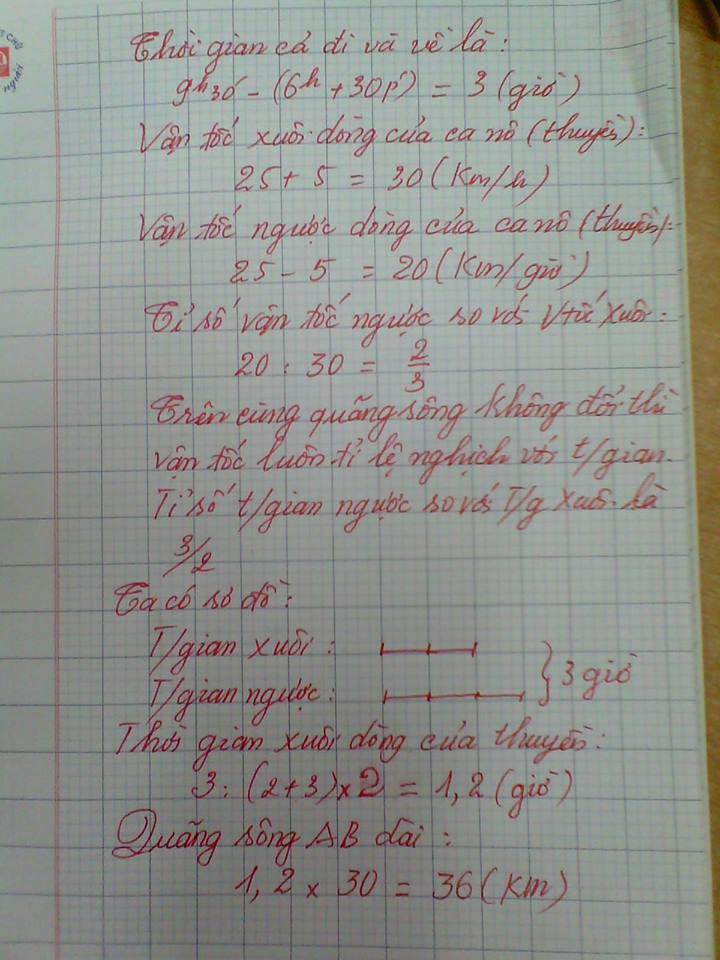 CHỮ
Thời gian cả đi và về là:
9h30' - (6h + 30p') = 3 (giờ)
Vận tốc xuôi dòng của ca nô (thuyền):
25 + 5 = 30 (Km/h)
Vận tốc ngược dòng của ca nô (thuyền):
25 - 5 = 20 (Km/giờ)
Tỉ số vận tốc ngược so với Vtốc xuôi:
20 : 30 = 2/3
Trên cùng quãng sông không đổi thì
vận tốc luôn tỉ lệ nghịch với t/gian.
Tỉ số t/gian ngược so với T/g xuôi là
3/2
Ta có sơ đồ:
T/gian xuôi:
T/gian ngược: } 3 giờ
Thời gian xuôi dòng của thuyền:
3 : (2+3) x 2 = 1,2 (giờ)
Quãng sông AB dài:
1,2 x 30 = 36 (Km)